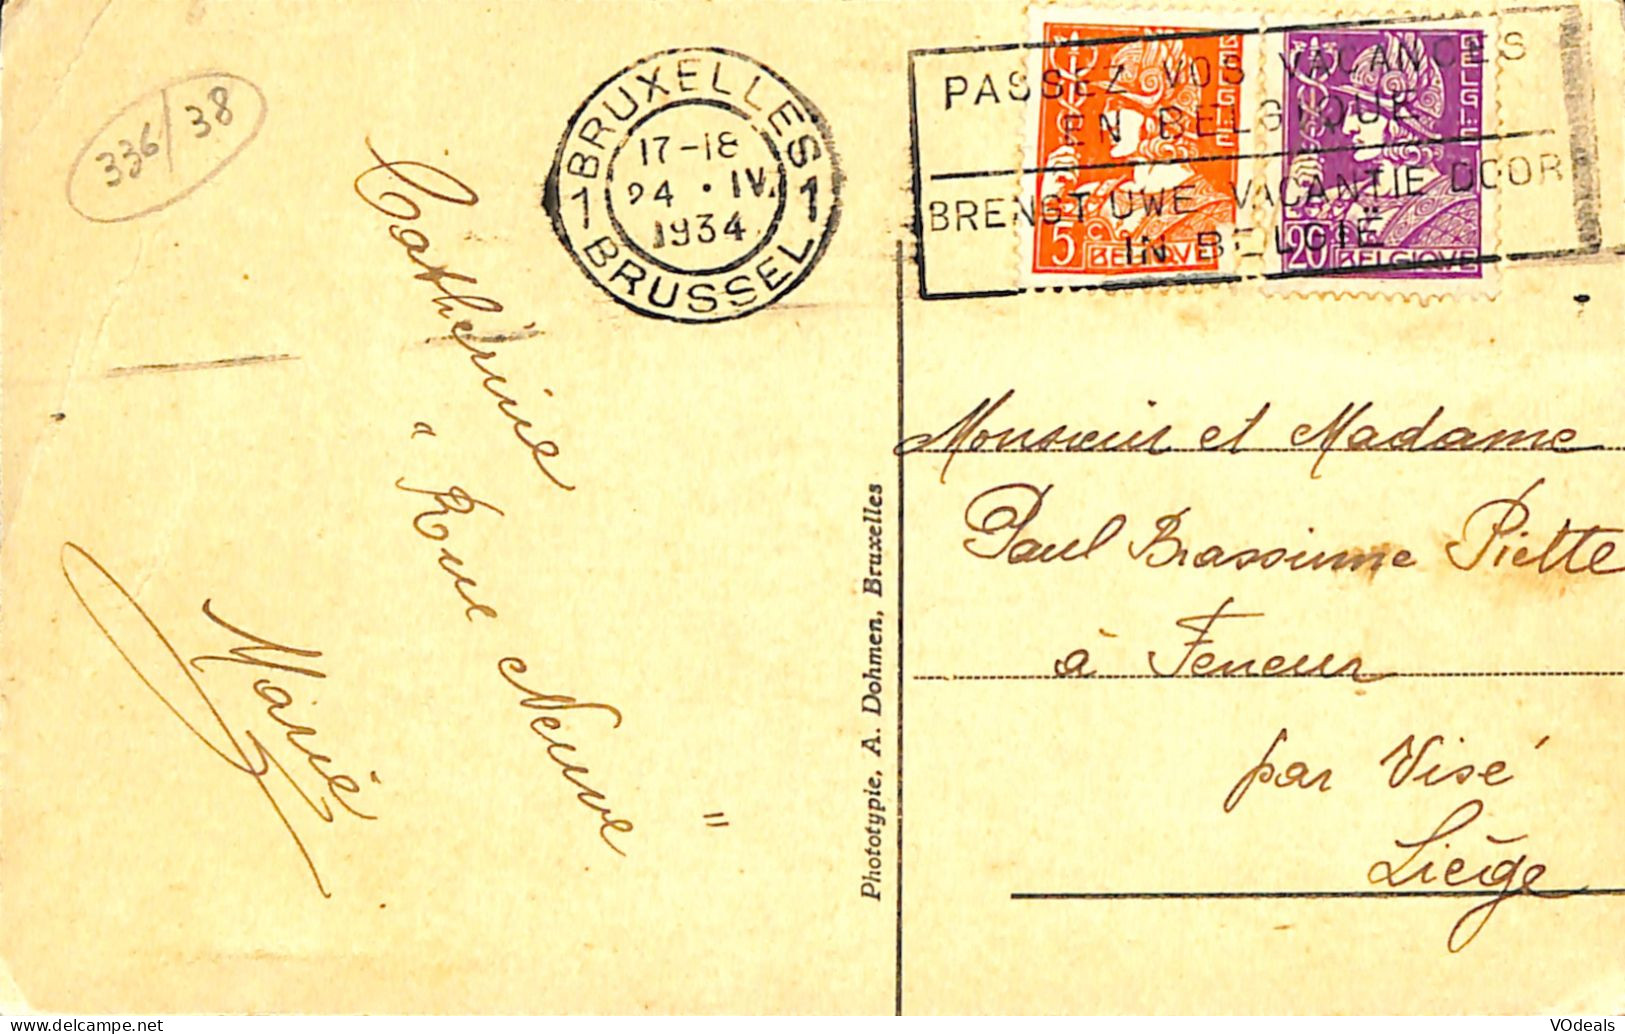 336/38
BRUXELLES
1 1
17-18
24 · IV.
1934
BRUSSEL
PASSEZ VOS VACANCES
EN BELGIQUE
BRENGT UWE VACANTIE DOOR
IN BELGIË
BELGIE
5 c BELGIQVE
BELGIE
20 c BELGIQVE
Catherine
" Rue Neuve "
Marie
Phototypie, A. Dohmen, Bruxelles
Monsieur et Madame
Paul Brassinne Piette
à Feneur
par Visé
Liège
VOdeals